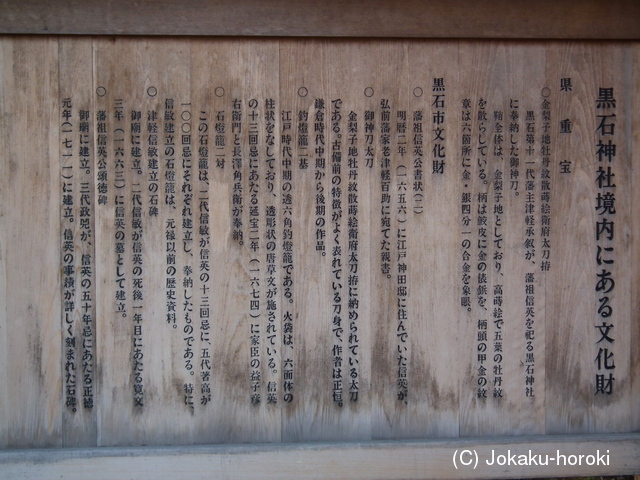 黒石神社境内にある文化財
県重宝
○金梨子地牡丹紋散蒔絵衛府太刀拵
黒石第十一代藩主津軽承叙が、藩祖信英を祀る黒石神社
に奉納した御神刀。
鞘全体は、金梨子地としており、高蒔絵で五葉の牡丹紋
を散らしている。柄は鮫皮に金の俵鋲を、柄頭の甲金の紋
章は六箇所に金・銀四分一の合金を象眼。
黒石市文化財
○ 藩祖信英公書状(二)
明暦二年(一六五六)に江戸神田邸に住んでいた信英が、
弘前藩家老津軽百助に宛てた親書。
○ 御神刀太刀
金梨子地牡丹紋散蒔絵衛府太刀拵に納められている太刀
である。古備前の特徴がよく表れている刀身で、作者は正恒。
鎌倉時代中期から後期の作品。
○ 釣燈籠一基
江戸時代中期の透六角釣燈籠である。火袋は、六面体の
柱状をなしており、透彫状の唐草文が施されている。信英
の十三回忌にあたる延宝二年(一六七四)に家臣の益子彦
右衛門と長澤角兵衛が奉納。
○ 石燈籠二対
この石燈籠は、二代信敏が信英の十三回忌に、五代著高が
一〇〇回忌にそれぞれ建立し、奉納したものである。特に、
信敏建立の石燈籠は、元禄以前の歴史資料。
○ 津軽信敏建立の石碑
御廟に建立。二代信敏が信英の死後一年目にあたる寛文
三年(一六六三)に信英の墓として建立。
○ 藩祖信英公頌徳碑
御廟に建立。三代政兕が、信英の五十年忌にあたる正徳
元年(一七一一)に建立。信英の事績が詳しく刻まれた石碑。
(C) Jokaku-horoki